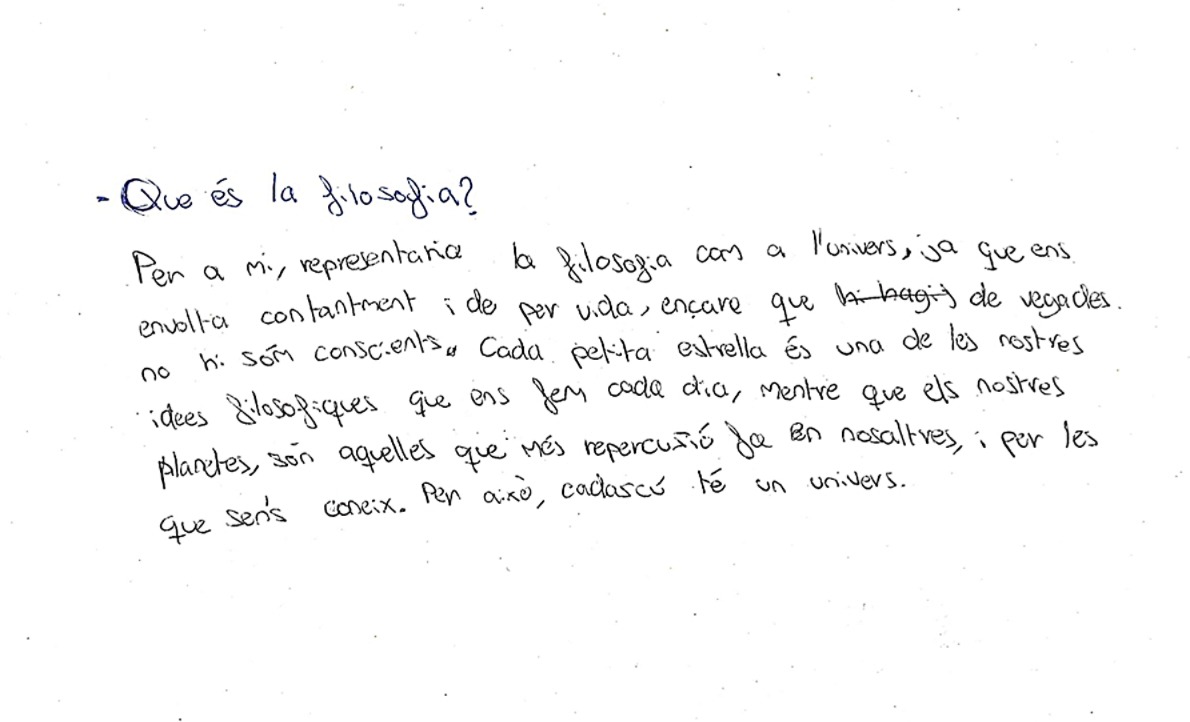 - Que és la filosofia?
Per a mi, representaria la filosofia com a l'univers, ja que ens
envolta contantment i de per vida, encare que hi hagis de vegades
no hi som conscients. Cada petita estrella és una de les nostres
idees filosofiques que ens fem cada dia, mentre que els nostres
planetes, són aquelles que més repercusió fa en nosaltres, i per les
que sen's coneix. Per això, cadascú té un univers.